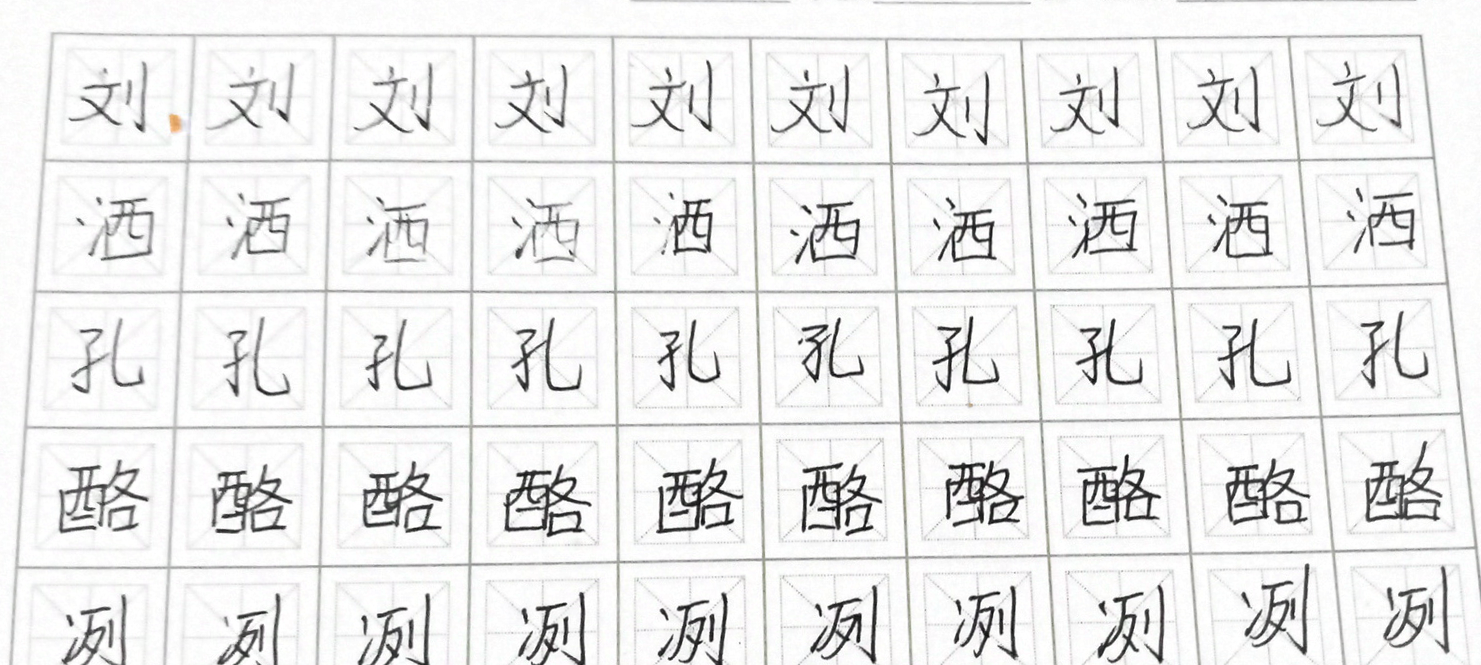 刘刘刘刘刘刘刘刘刘刘
洒洒洒洒洒洒洒洒洒洒
孔孔孔孔孔孔孔孔孔孔
酪酪酪酪酪酪酪酪酪酪
冽冽冽冽冽冽冽冽冽冽